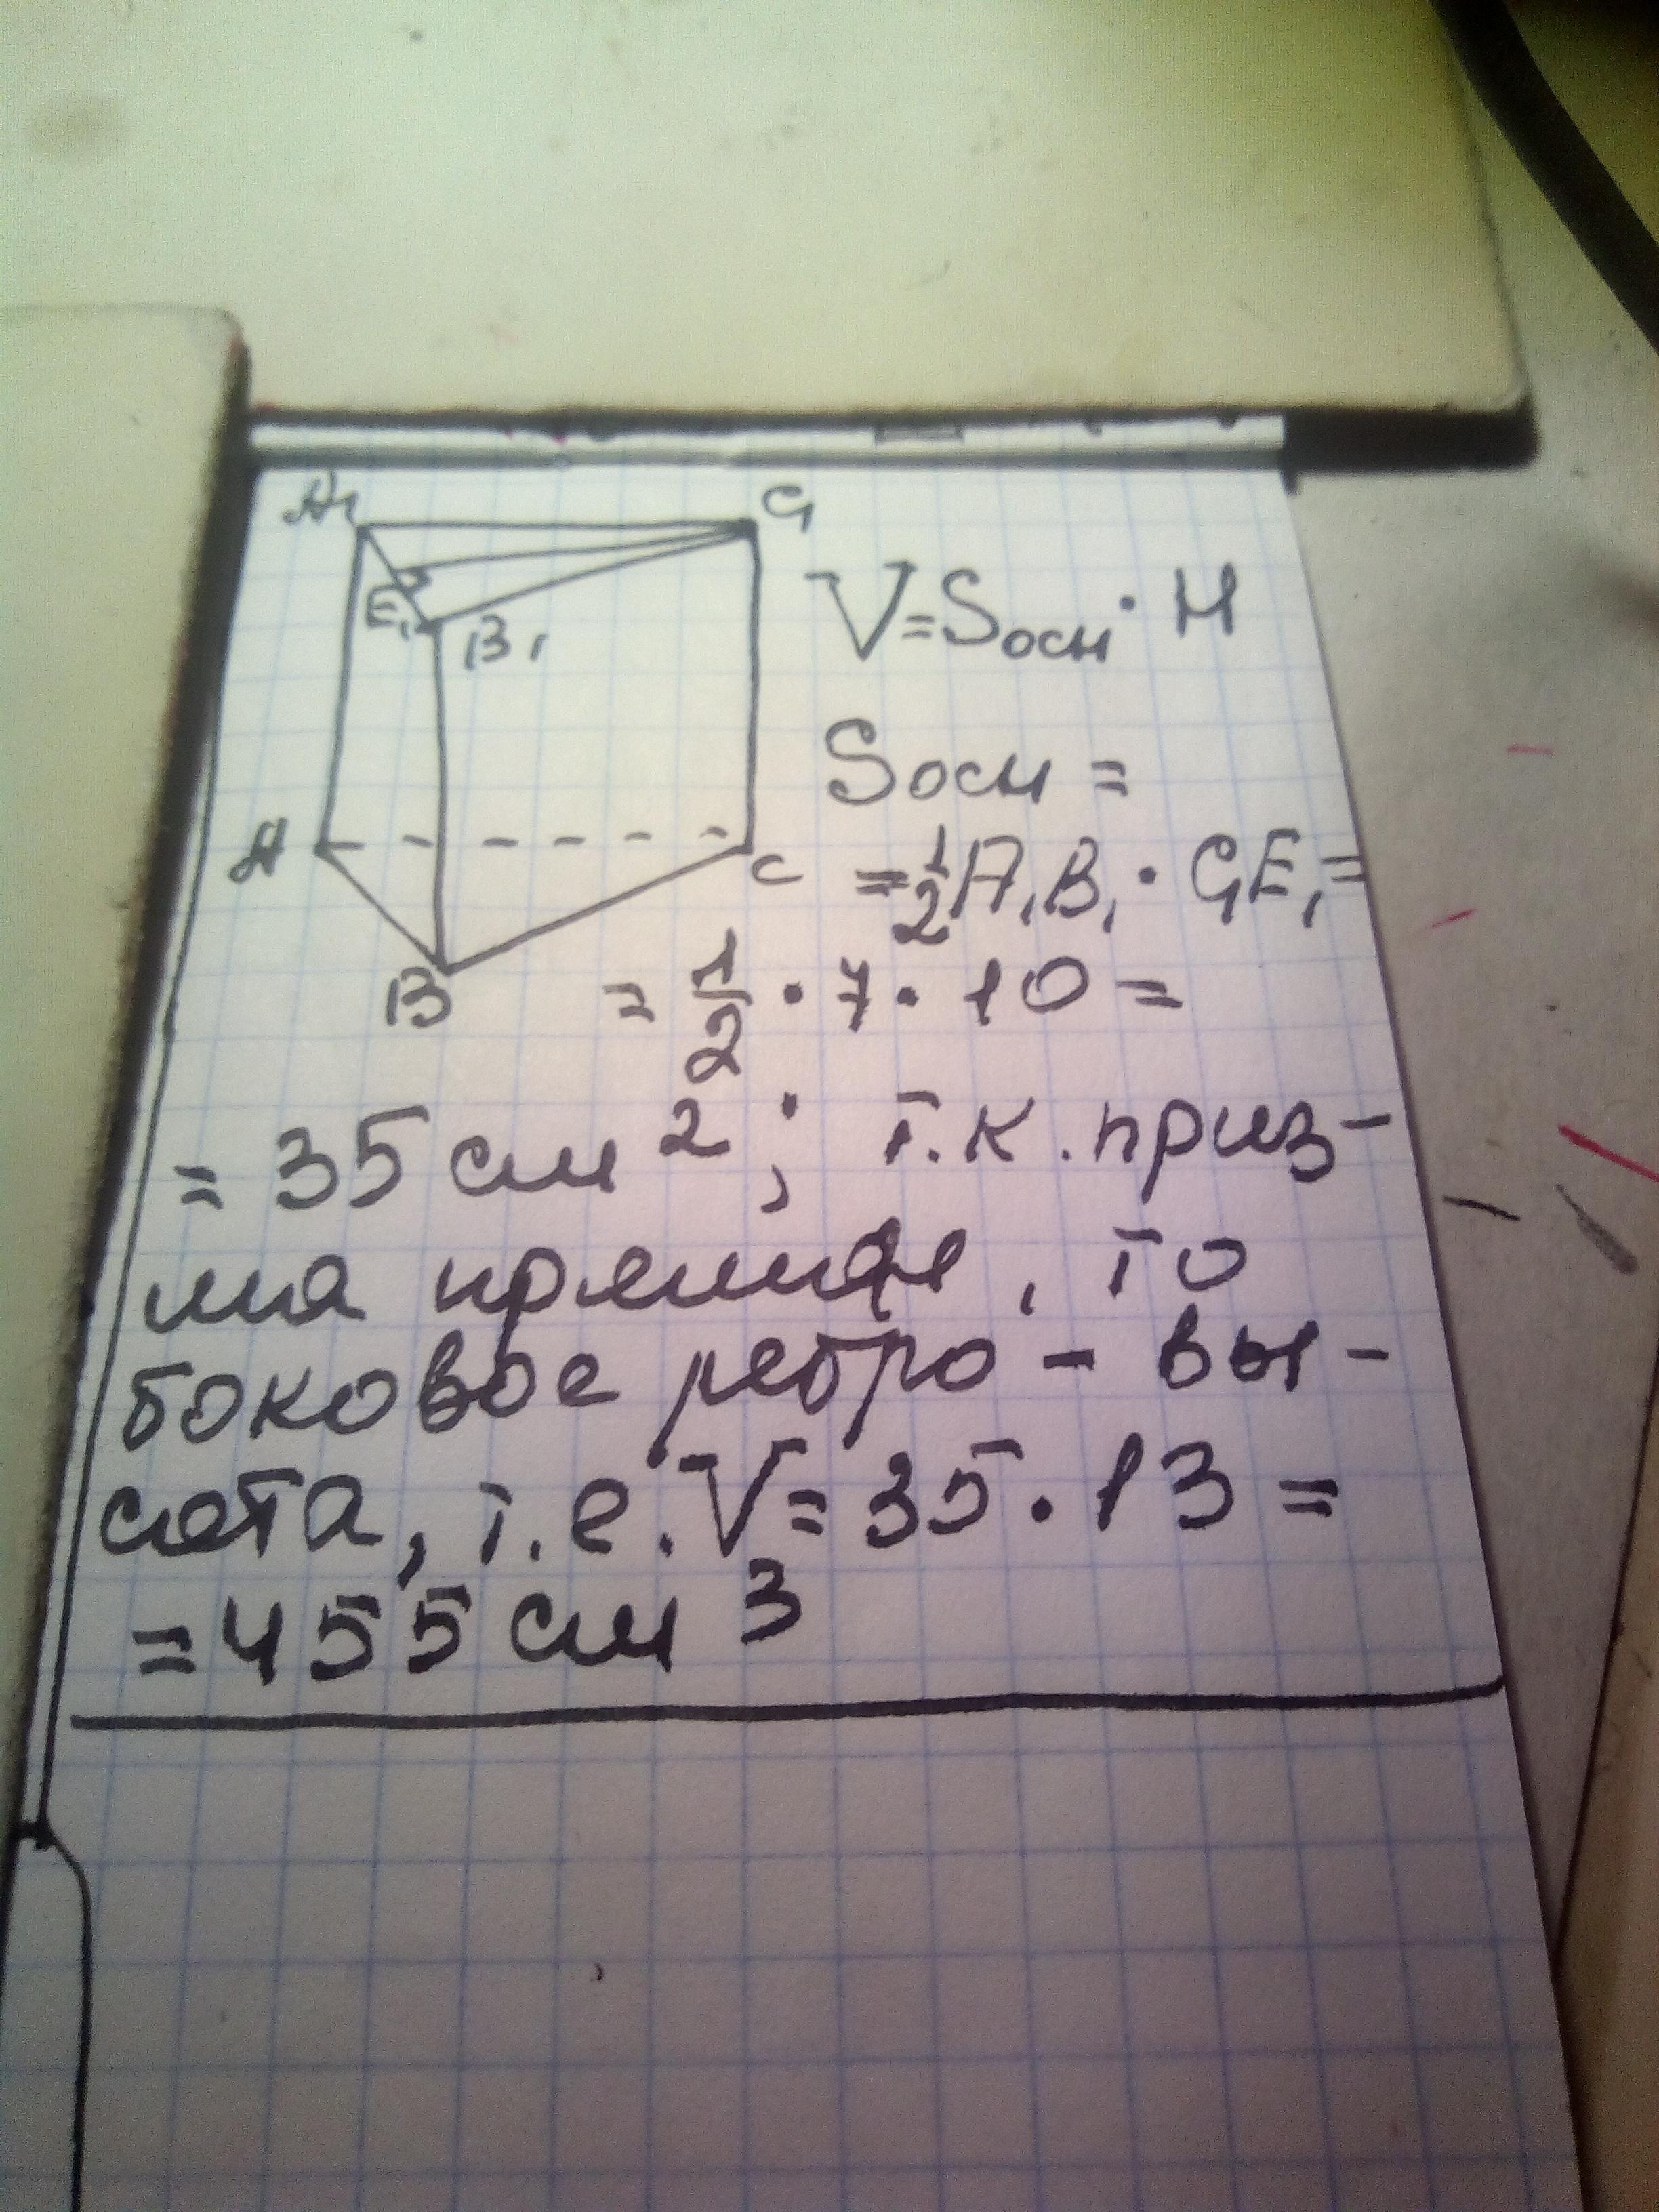 A₁ C₁
E₁ B₁
V=Sосн·H
Sосн =
A C
=½A₁B₁·C₁E₁=
B
= ½·7·10=
= 35 см²; т.к. приз-
ма прямая, то
боковое ребро - вы-
сота, т.е. V=35·13=
=455 см³